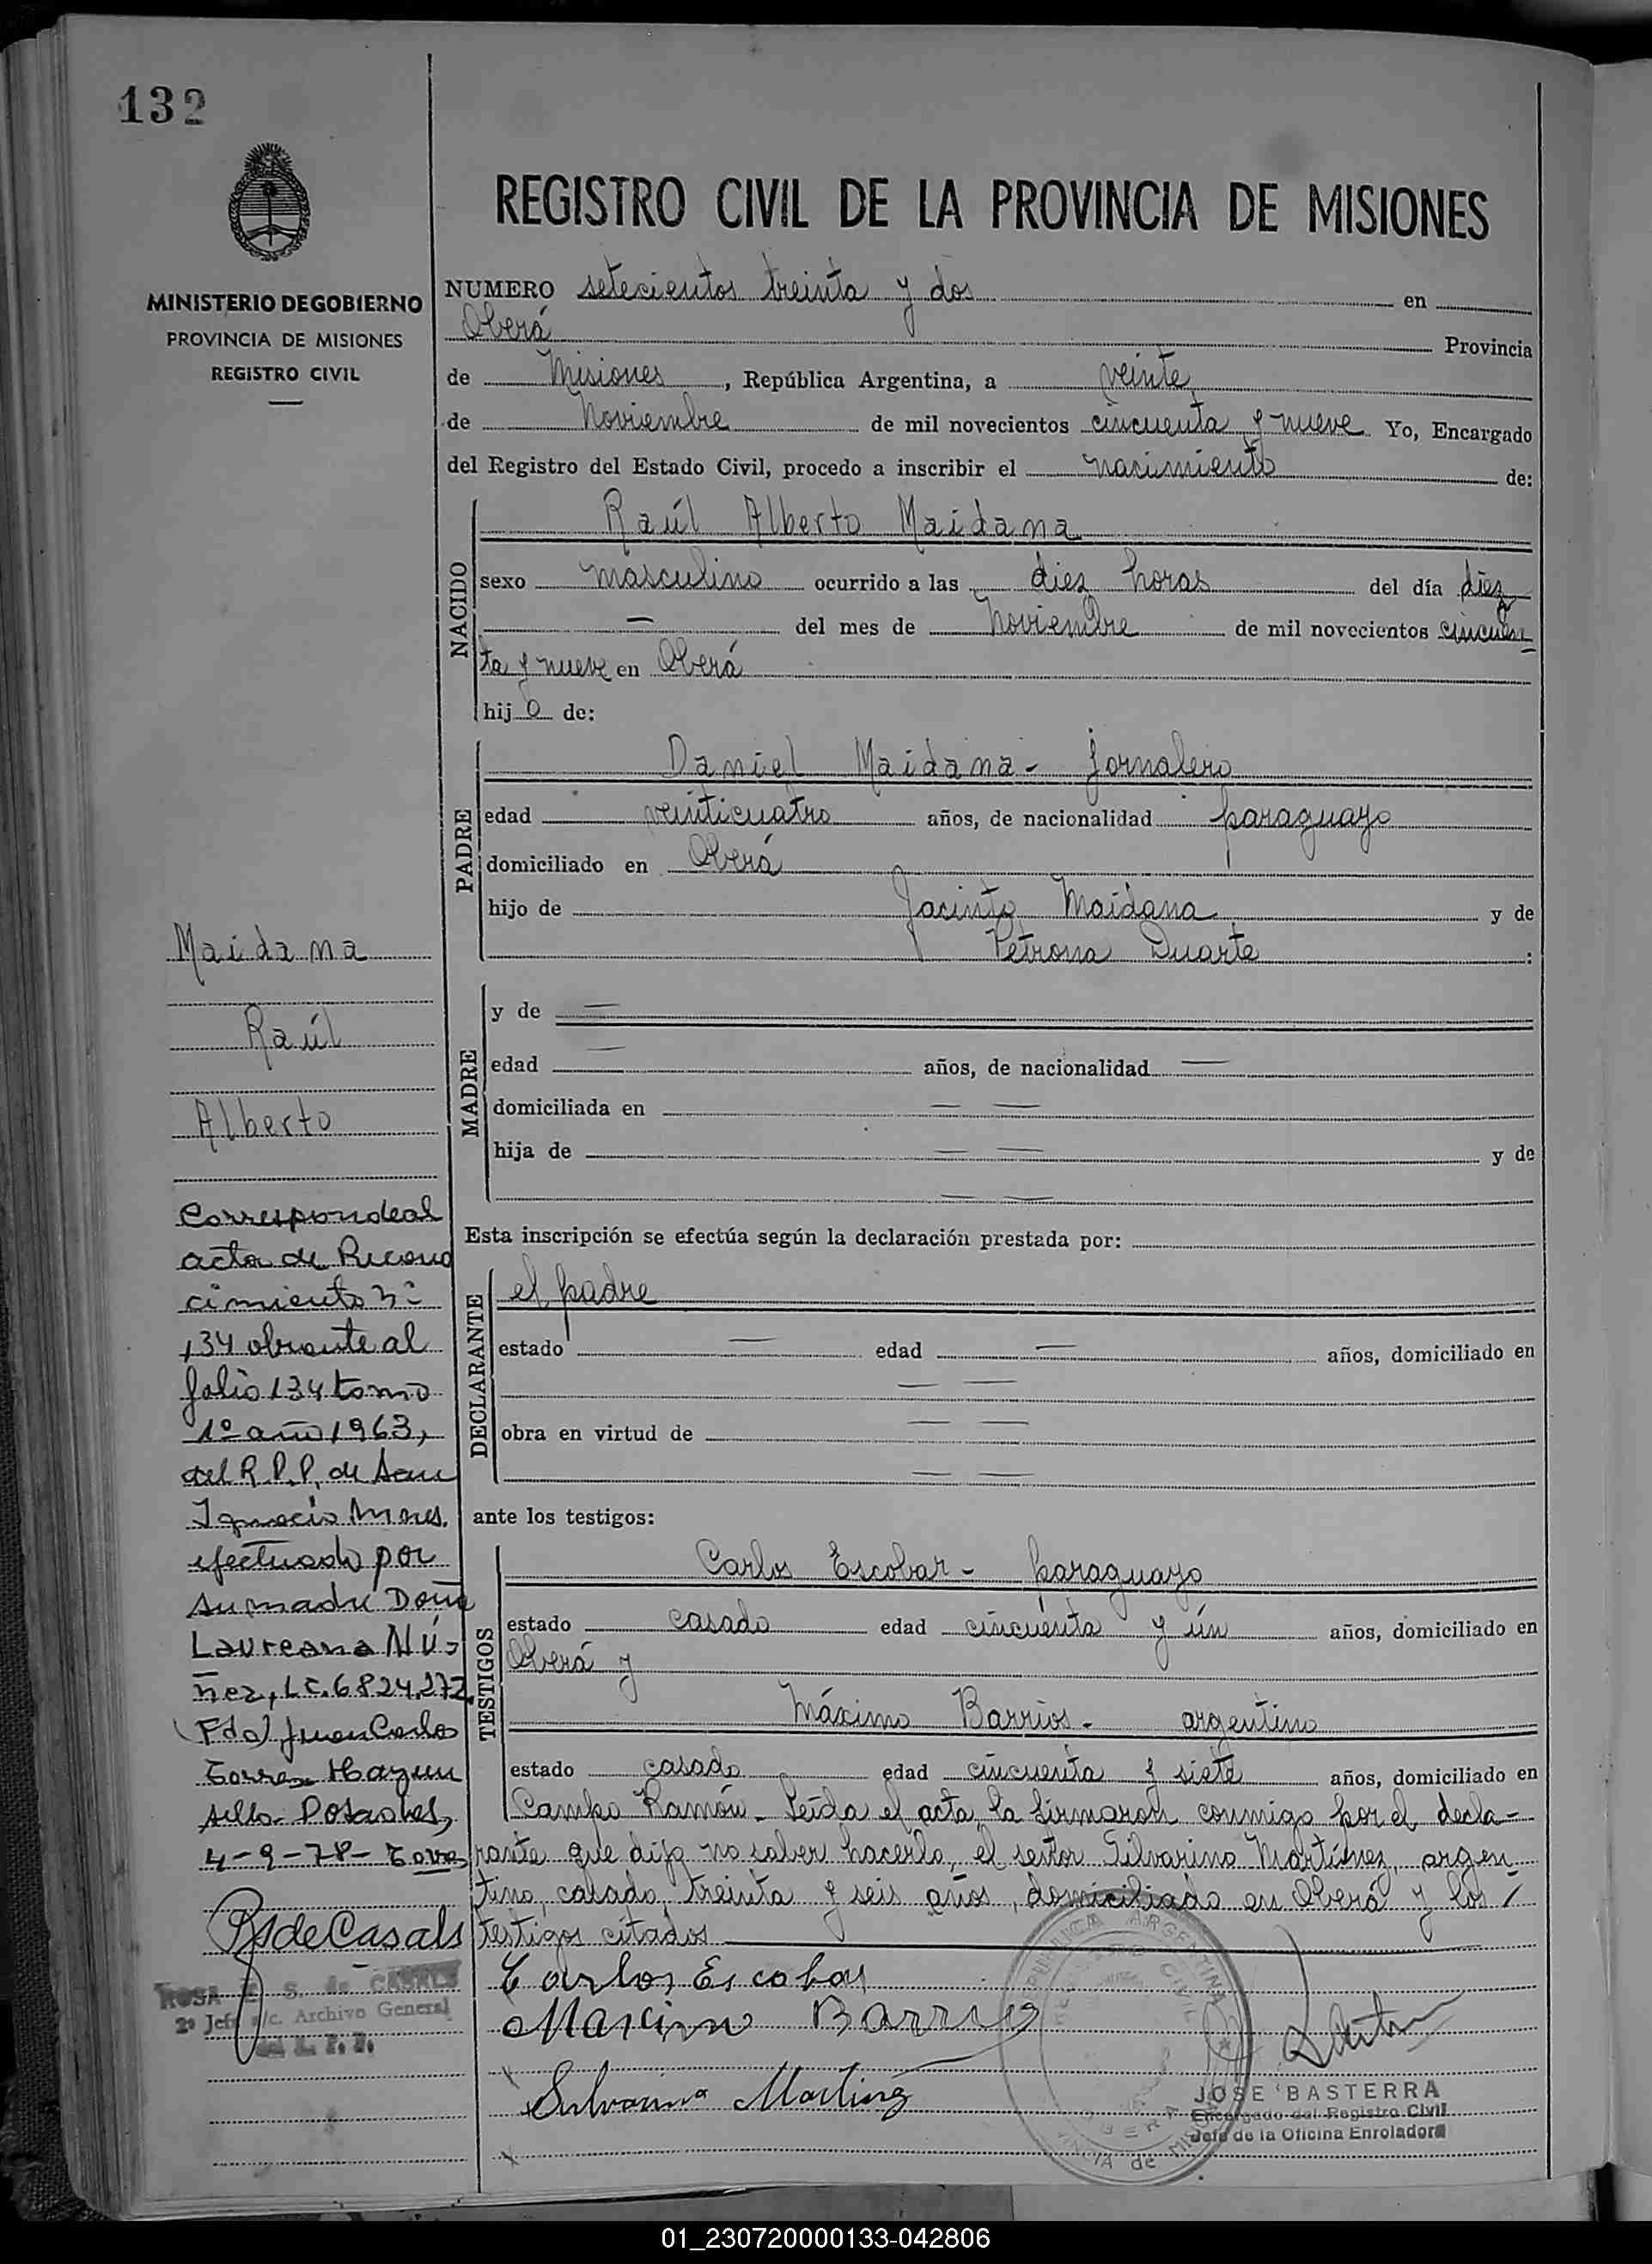 132
MINISTERIO DE GOBIERNO
PROVINCIA DE MISIONES
REGISTRO CIVIL
REGISTRO CIVIL DE LA PROVINCIA DE MISIONES
NUMERO setecientos treinta y dos en
Oberá Provincia
de Misiones, República Argentina, a veinte
de Noviembre de mil novecientos cincuenta y nueve Yo, Encargado
del Registro del Estado Civil, procedo a inscribir el nacimiento de:
NACIDO
Raúl Alberto Maidana
sexo masculino ocurrido a las diez horas del día diez
— del mes de Noviembre de mil novecientos cincuen
ta y nueve en Oberá
hijo de:
PADRE
Daniel Maidana - jornalero
edad veinticuatro años, de nacionalidad paraguayo
domiciliado en Oberá
hijo de Jacinto Maidana y de
Petrona Duarte :
MADRE
y de —
edad — años, de nacionalidad —
domiciliada en — —
hija de — — y de
— —
Esta inscripción se efectúa según la declaración prestada por:
DECLARANTE
el padre
estado — edad — años, domiciliado en
— —
obra en virtud de — —
— —
ante los testigos:
TESTIGOS
Carlos Escobar - paraguayo
estado casado edad cincuenta y ún años, domiciliado en
Oberá y
Máximo Barrios - argentino
estado casado edad cincuenta y siete años, domiciliado en
Campo Ramón. Leída el acta, la firmaron conmigo por el decla-
rante que dijo no saber hacerlo, el señor Silvarino Martínez, argen
tino, casado, treinta y seis años, domiciliado en Oberá y los
testigos citados
Carlos Escobar
Maximo Barrios
Silvarino Martinez
REPUBLICA ARGENTINA
JOSE BASTERRA
Encargado del Registro Civil
Jefe de la Oficina Enroladora
Maidana
Raúl
Alberto
Corresponde al
acta de Recono
cimiento nº
134 obrante al
folio 134 tomo
1º año 1963,
del R.P.P. de San
Ignacio Mnes.
efectuado por
su madre Doña
Laureana Nú-
ñez, LC. 6824.272.
(Fdo) Juan Carlos
Torres Hay un
sello- Posadas,
4-9-78-
R S de Casals
ROSA S. de CASALS
2º Jefe a/c. Archivo General
del R. P. P.
01_230720000133-042806